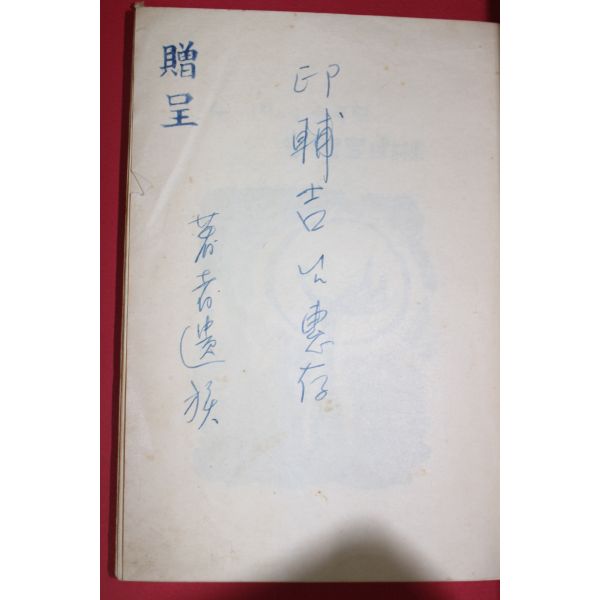 印輔吉公惠存
著者遺族
贈呈